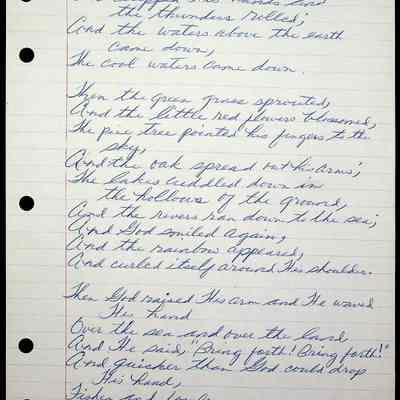 his hands and
the thunders rolled;
And the waters above the earth
came down,
The cool waters came down.
Then the green grass sprouted,
And the little red flowers blossomed,
The pine tree pointed his fingers to the
sky,
And the oak spread out his arms;
The lakes cuddled down in
the hollows of the ground,
And the rivers ran down to the sea;
And God smiled again,
And the rainbow appeared,
And curled itself around His shoulder.
Then God raised His arm and He waved
His hand
Over the sea and over the land
And He said, "Bring forth! Bring forth!"
And quicker than God could drop
His hand,
Fishes and